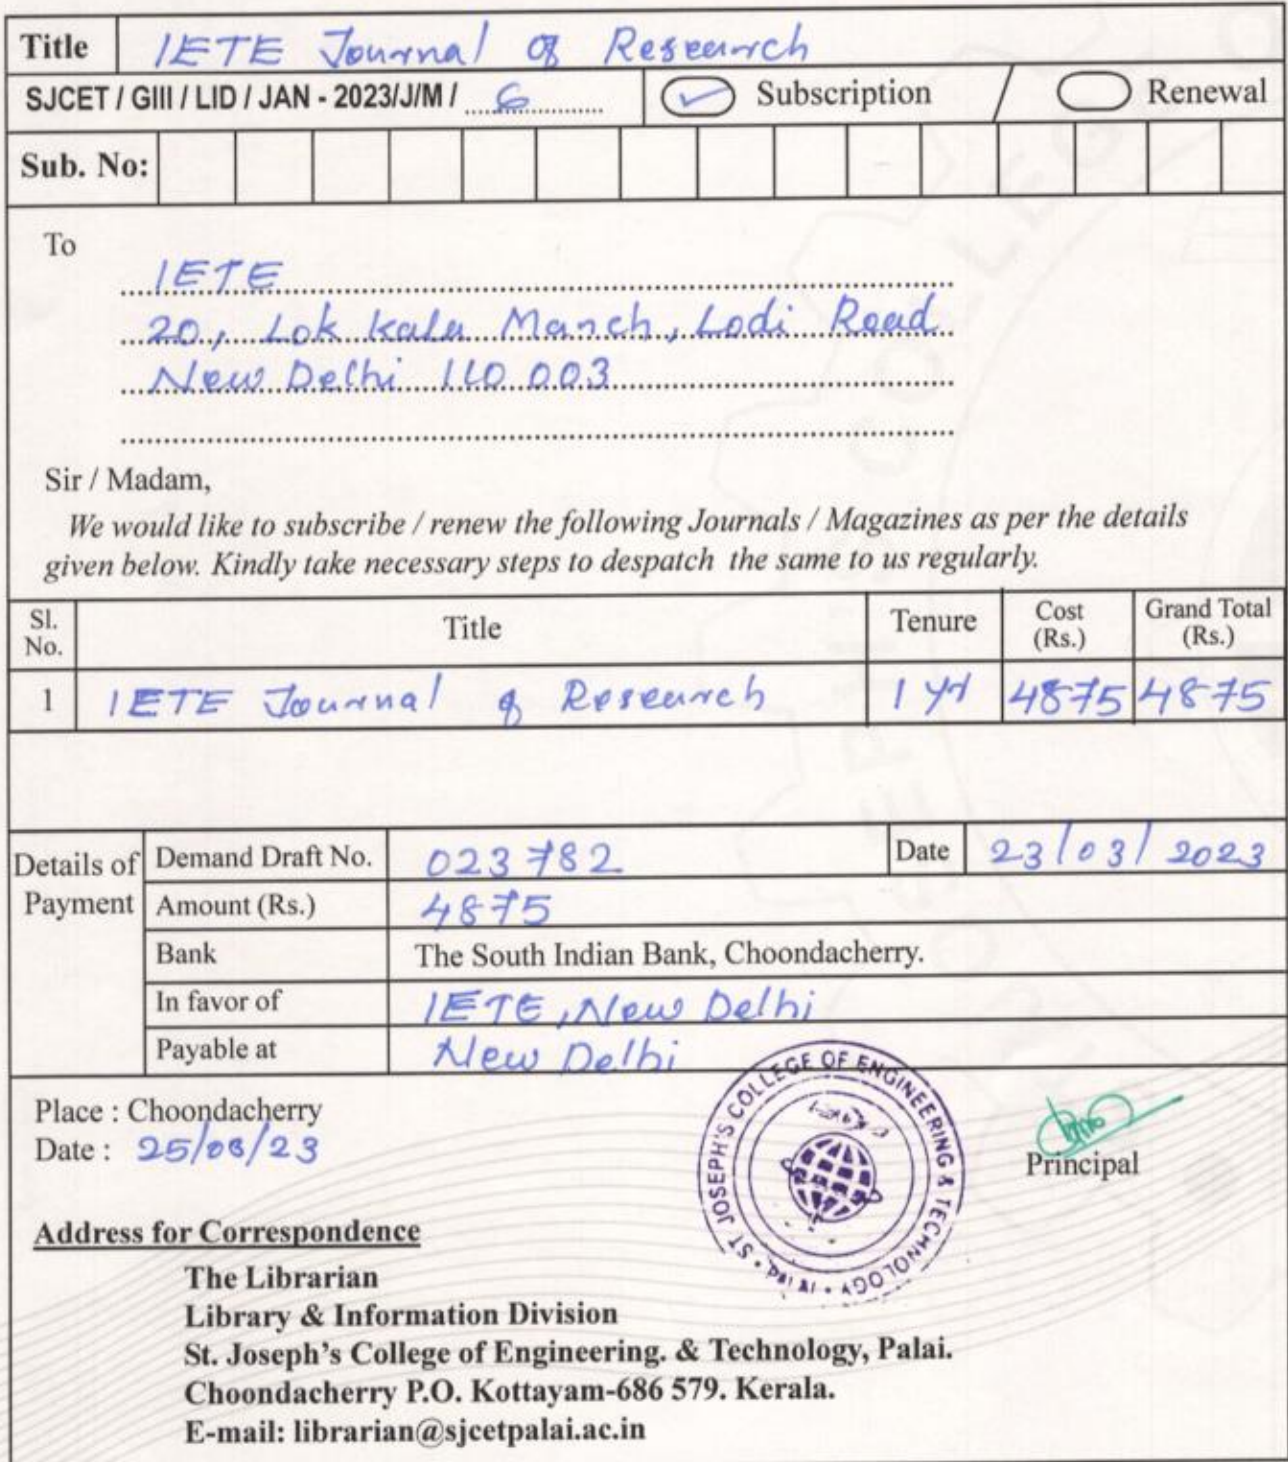 Title IETE Journal of Research
SJCET / GIII / LID / JAN - 2023/J/M / 6 Subscription / Renewal
Sub. No:
To
IETE
20, Lok kala Manch, Lodi Road
New Delhi 110 003
Sir / Madam,
We would like to subscribe / renew the following Journals / Magazines as per the details
given below. Kindly take necessary steps to despatch the same to us regularly.
Sl. No. Title Tenure Cost (Rs.) Grand Total (Rs.)
1 IETE Journal of Research 1 yr 4875 4875
Details of Payment
Demand Draft No. 023782 Date 23/03/2023
Amount (Rs.) 4875
Bank The South Indian Bank, Choondacherry.
In favor of IETE, New Delhi
Payable at New Delhi
Place : Choondacherry
Date : 25/03/23
ST JOSEPH'S COLLEGE OF ENGINEERING & TECHNOLOGY • PALAI •
Principal
Address for Correspondence
The Librarian
Library & Information Division
St. Joseph's College of Engineering. & Technology, Palai.
Choondacherry P.O. Kottayam-686 579. Kerala.
E-mail: librarian@sjcetpalai.ac.in